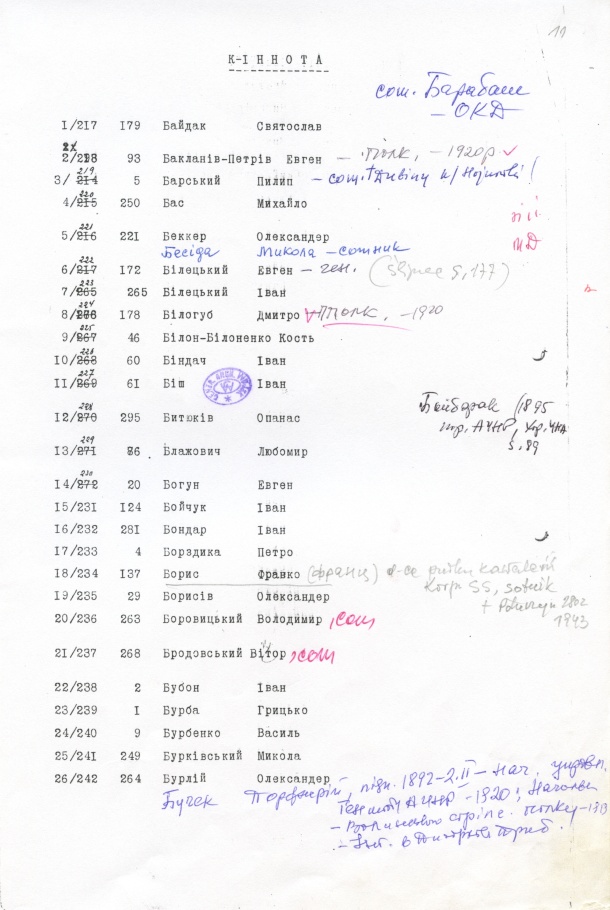 11
К-І Н Н О Т А
сот. Барабаш
– ОКД
1/217 179 Байдак Святослав
2/218 93 Бакланів-Петрів Евген – Полк. – 1920р
219
3/214 5 Барський Пилип – сот.
220
4/215 250 Бас Михайло
221
5/216 221 Беккер Олександер
Бесіда Микола – сотник
222
6/217 172 Білецький Евген – ген.
223
7/265 265 Білецький Іван
224
8/266 178 Білогуб Дмитро Полк. – 1920
225
9/267 46 Білон-Білоненко Кость
226
10/268 60 Біндач Іван
227
11/269 61 Біш Іван
228
12/270 295 Битюків Опанас
Байбарак /1895
АУНР, хор. УНА
s. 89
229
13/271 86 Блажович Любомир
230
14/272 20 Богун Евген
15/231 124 Бойчук Іван
16/232 281 Бондар Іван
17/233 4 Борздика Петро
18/234 137 Борис Франко (Франц)
Korpu SS, sotnik
1943
19/235 29 Борисів Олександер
20/236 263 Боровицький Володимир, сот
21/237 268 Бродовський Вітор, сот
22/238 2 Бубон Іван
23/239 1 Бурба Грицько
24/240 9 Бурбенко Василь
25/241 249 Бурківський Микола
26/242 264 Бурлій Олександер
Бучек Порфирій, 1892–2.ІІ – Нач.
АУНР –1920; Началь